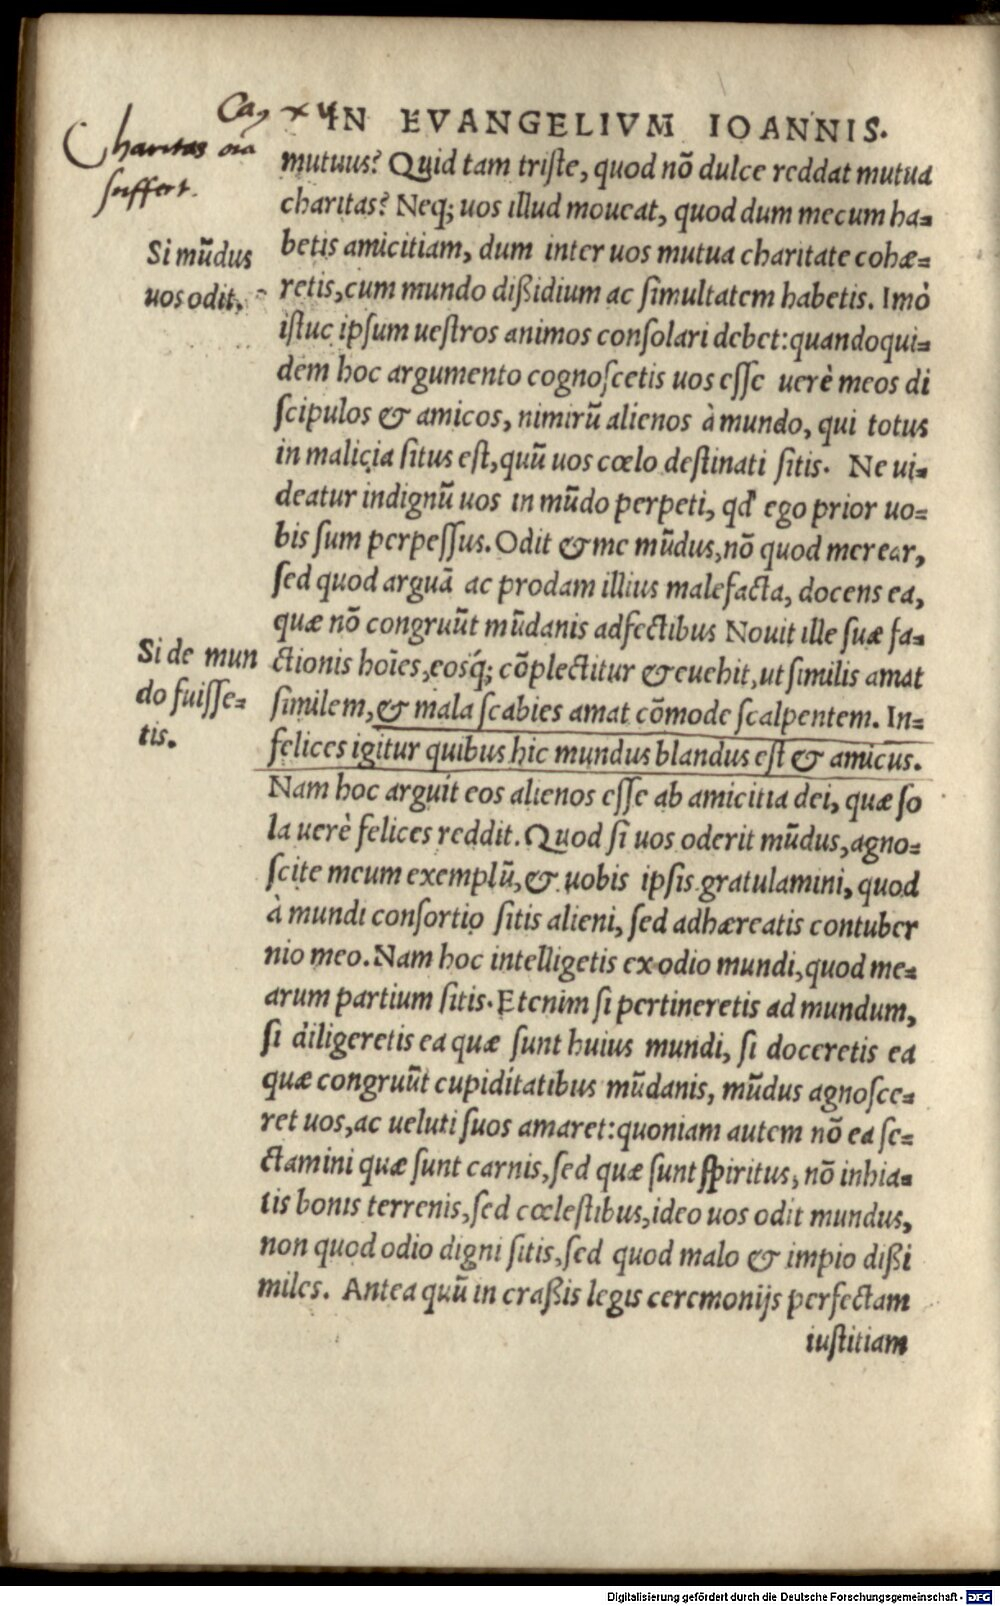 Ca, xv
IN EVANGELIVM IOANNIS.
Charitas oīa
suffert.
mutuus? Quid tam triste, quod nō dulce reddat mutua
charitas? Neq; uos illud moueat, quod dum mecum ha=
Si mūdus
betis amicitiam, dum inter uos mutua charitate cohæ=
uos odit.
retis, cum mundo dißidium ac simultatem habetis. Imò
istuc ipsum uestros animos consolari debet: quandoqui=
dem hoc argumento cognoscetis uos esse uerè meos di
scipulos & amicos, nimirū alienos à mundo, qui totus
in malicia situs est, quū uos cœlo destinati sitis. Ne ui=
deatur indignū uos in mūdo perpeti, qđ ego prior uo=
bis sum perpessus. Odit & me mūdus, nō quod merear,
sed quod arguā ac prodam illius malefacta, docens ea,
quæ nō congruūt mūdanis adfectibus Nouit ille suæ fa=
Si de mun
ctionis hoīes, eosq́; cōplectitur & euehit, ut similis amat
do fuisse=
similem, & mala scabies amat cōmode scalpentem. In=
tis.
felices igitur quibus hic mundus blandus est & amicus.
Nam hoc arguit eos alienos esse ab amicitia dei, quæ so
la uerè felices reddit. Quod si uos oderit mūdus, agno=
scite meum exemplū, & uobis ipsis gratulamini, quod
à mundi consortio sitis alieni, sed adhæreatis contuber
nio meo. Nam hoc intelligetis ex odio mundi, quod me=
arum partium sitis. Etenim si pertineretis ad mundum,
si diligeretis ea quæ sunt huius mundi, si doceretis ea
quæ congruūt cupiditatibus mūdanis, mūdus agnosce=
ret uos, ac ueluti suos amaret: quoniam autem nō ea se=
ctamini quæ sunt carnis, sed quæ sunt spiritus, nō inhia=
tis bonis terrenis, sed cœlestibus, ideo uos odit mundus,
non quod odio digni sitis, sed quod malo & impio dißi
miles. Antea quū in craßis legis ceremonijs perfectam
iustitiam
Digitalisierung gefördert durch die Deutsche Forschungsgemeinschaft - DFG